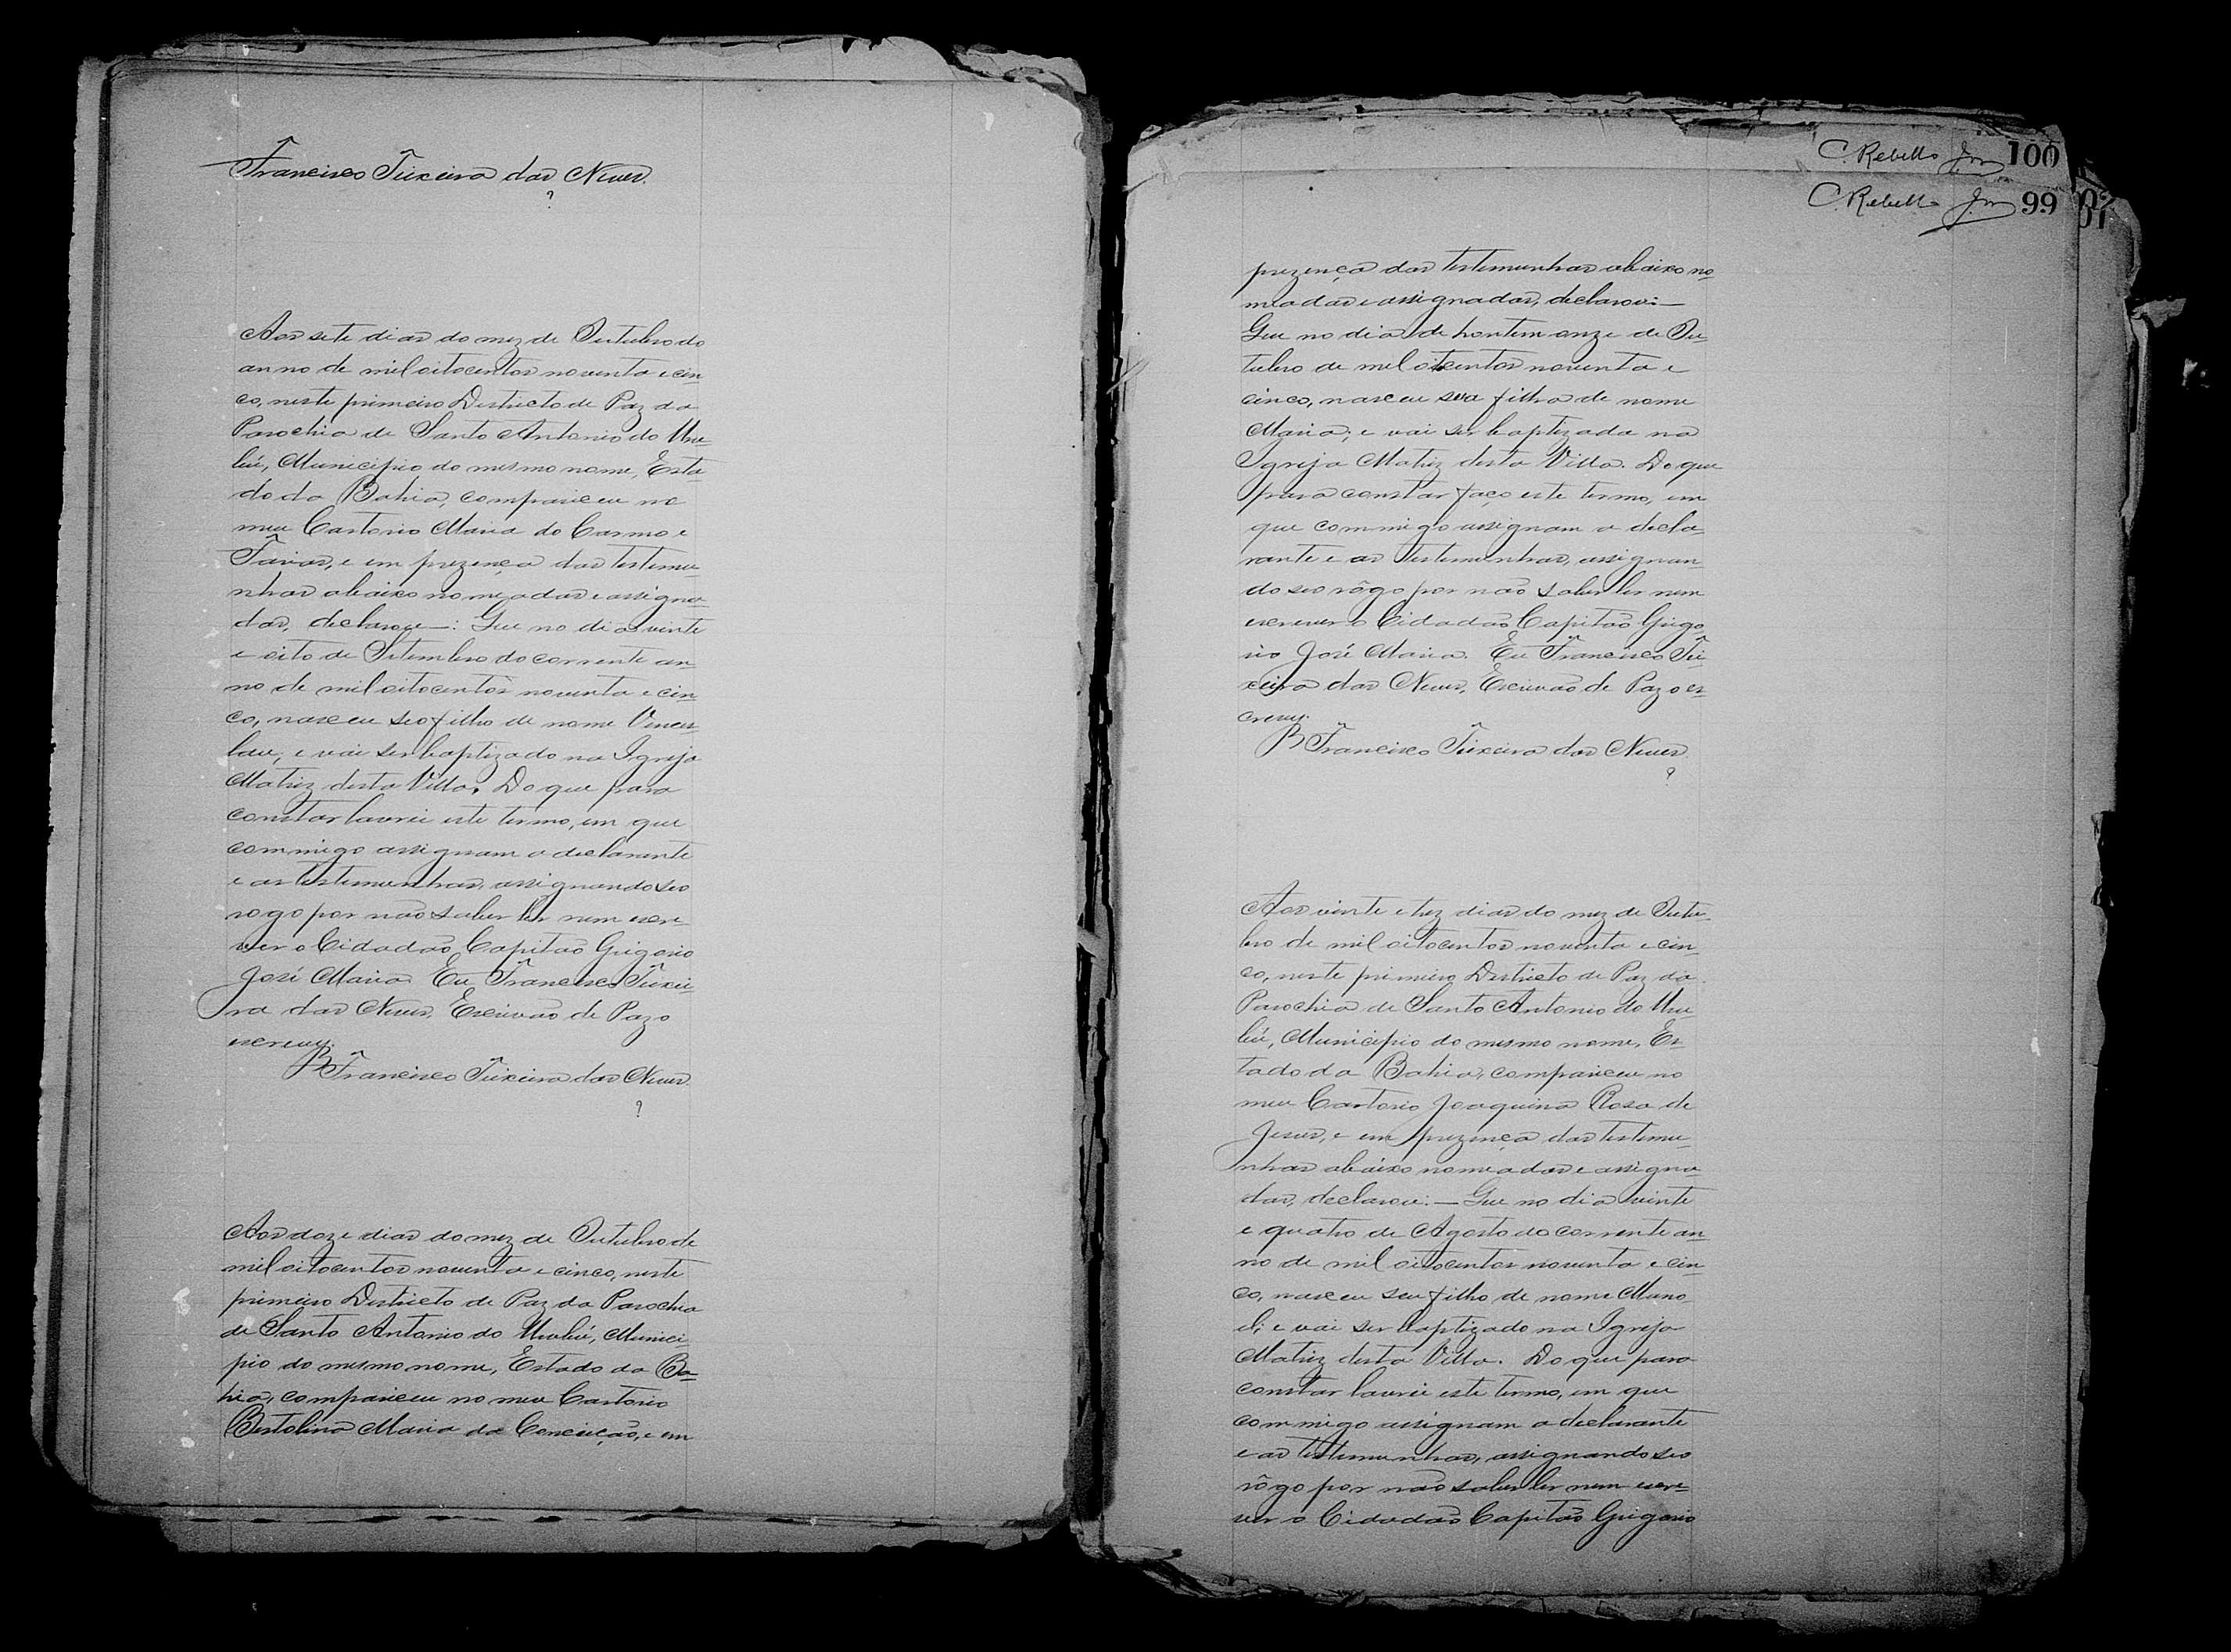 Francisco Teixeira das Neves.
Aos sete dias do mez de Outubro do
anno de mil oitocentos noventa e cin-
co, neste primeiro Districto de Paz da
Parochia de Santo Antonio do Uru-
bú, Municipio do mesmo nome, Esta-
do da Bahia, compareceu no
meu Cartorio Maria do Carmo e
e em prezença das testemu-
nhas abaixo nomeadas e assigna-
das, declarou—: Que no dia vinte
e oito de Setembro do corrente an-
no de mil oitocentos noventa e cin-
co, nasceu seo filho de nome Vences-
lau, e vai ser baptizado na Igreja
Matriz desta Villa. Do que para
constar lavrei este termo, em que
commigo assignam a declarante
e as testemunhas, assignando seo
rogo por não saber ler nem escre-
ver o Cidadão Capitão Grigorio
José Maria. Eu Francisco Teixei-
ra das Neves, Escrivão de Paz o
escrevy.
Francisco Teixeira das Neves.
Aos doze dias do mez de Outubro de
mil oitocentos noventa e cinco, neste
primeiro Districto de Paz da Parochia
de Santo Antonio do Urubú, Munici-
pio do mesmo nome, Estado da Ba-
hia, compareceu no meu Cartorio
Bertolina Maria da Conceição, e em
C. Rebello Jor 100
C. Rebello Jor 99
prezença das testemunhas abaixo no-
meadas e assignadas, declarou:—
Que no dia de hontem onze de Ou-
tubro de mil oitocentos noventa e
cinco, nasceu sua filha de nome
Maria; e vai ser baptizada na
Igreja Matriz desta Villa. Do que
para constar faço este termo, em
que commigo assignam a decla-
rante e as testemunhas, assignan-
do seo rôgo por não saber ler nem
escrever o Cidadão Capitão Grigo-
rio José Maria. Eu Francisco Tei-
xeira das Neves, Escrivão de Paz o es-
crevy.
Francisco Teixeira das Neves.
Aos vinte e trez dias do mez de Outu-
bro de mil oitocentos noventa e cin-
co, neste primeiro Districto de Paz da
Parochia de Santo Antonio do Uru-
bú, Municipio do mesmo nome, Es-
tado da Bahia, compareceu no
meu Cartorio Joaquina Rosa de
Jesus, e em prezença das testemu-
nhas abaixo nomeadas e assigna-
das, declarou:— Que no dia vinte
e quatro de Agosto do corrente an-
no de mil oitocentos noventa e cin-
co, nasceu seu filho de nome Mano-
el; e vai ser baptizado na Igreja
Matriz desta Villa. Do que para
constar lavrei este termo, em que
commigo assignam a declarante
e as testemunhas, assignando seo
rôgo por não saber ler nem escre-
ver o Cidadão Capitão Grigorio